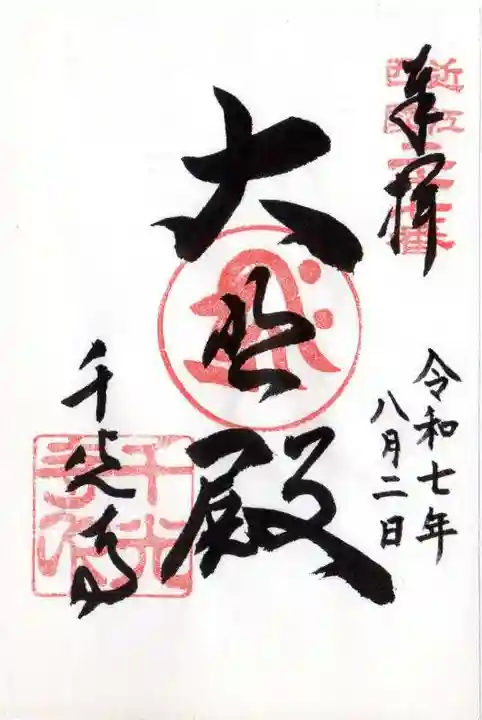 奉拝
近江
西国
大悲殿
令和七年
八月二日
千光寺
千光